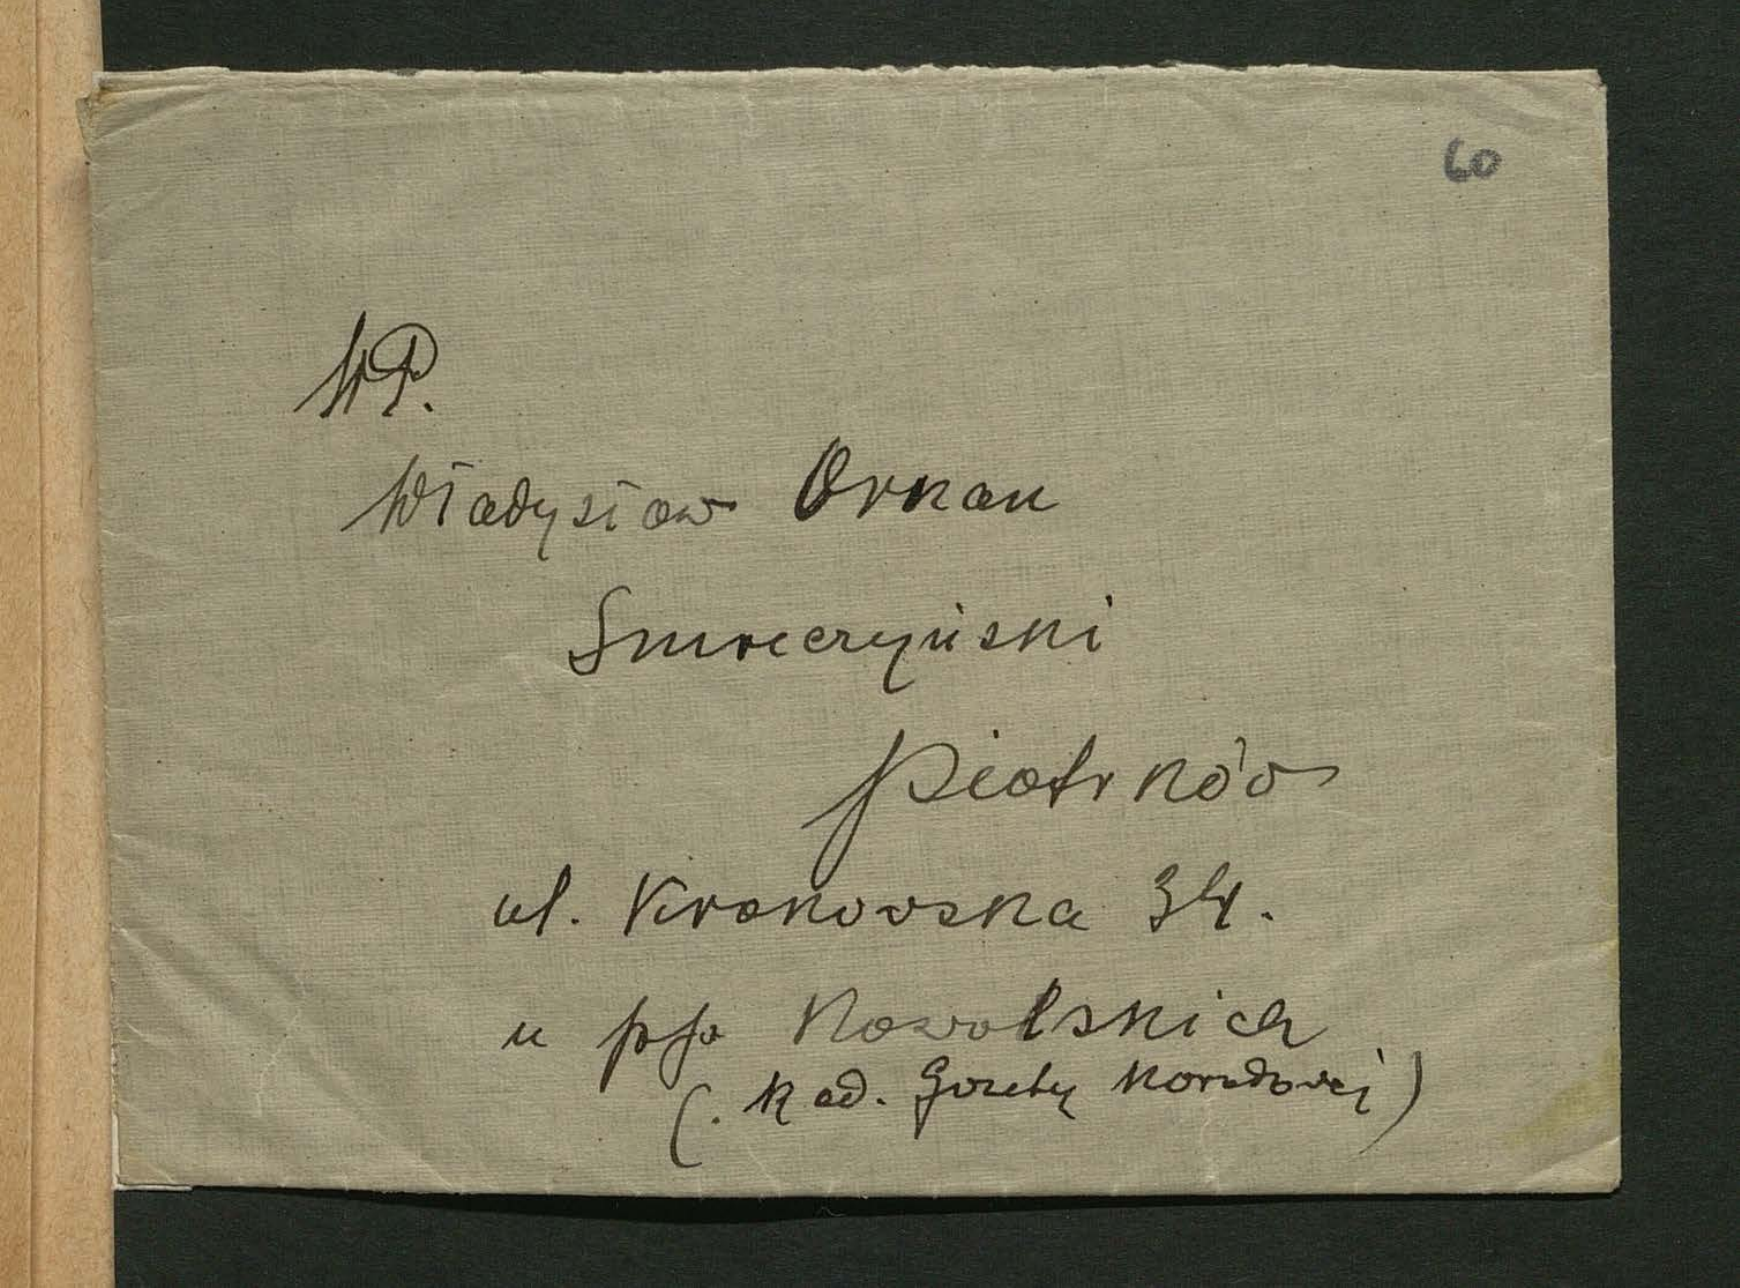 60
WP.
Władysław Orkan
Smreczyński
Piotrków
ul. Krakowska 34.
u pp Kowalskich
(. Red. Gazety Narodowej)